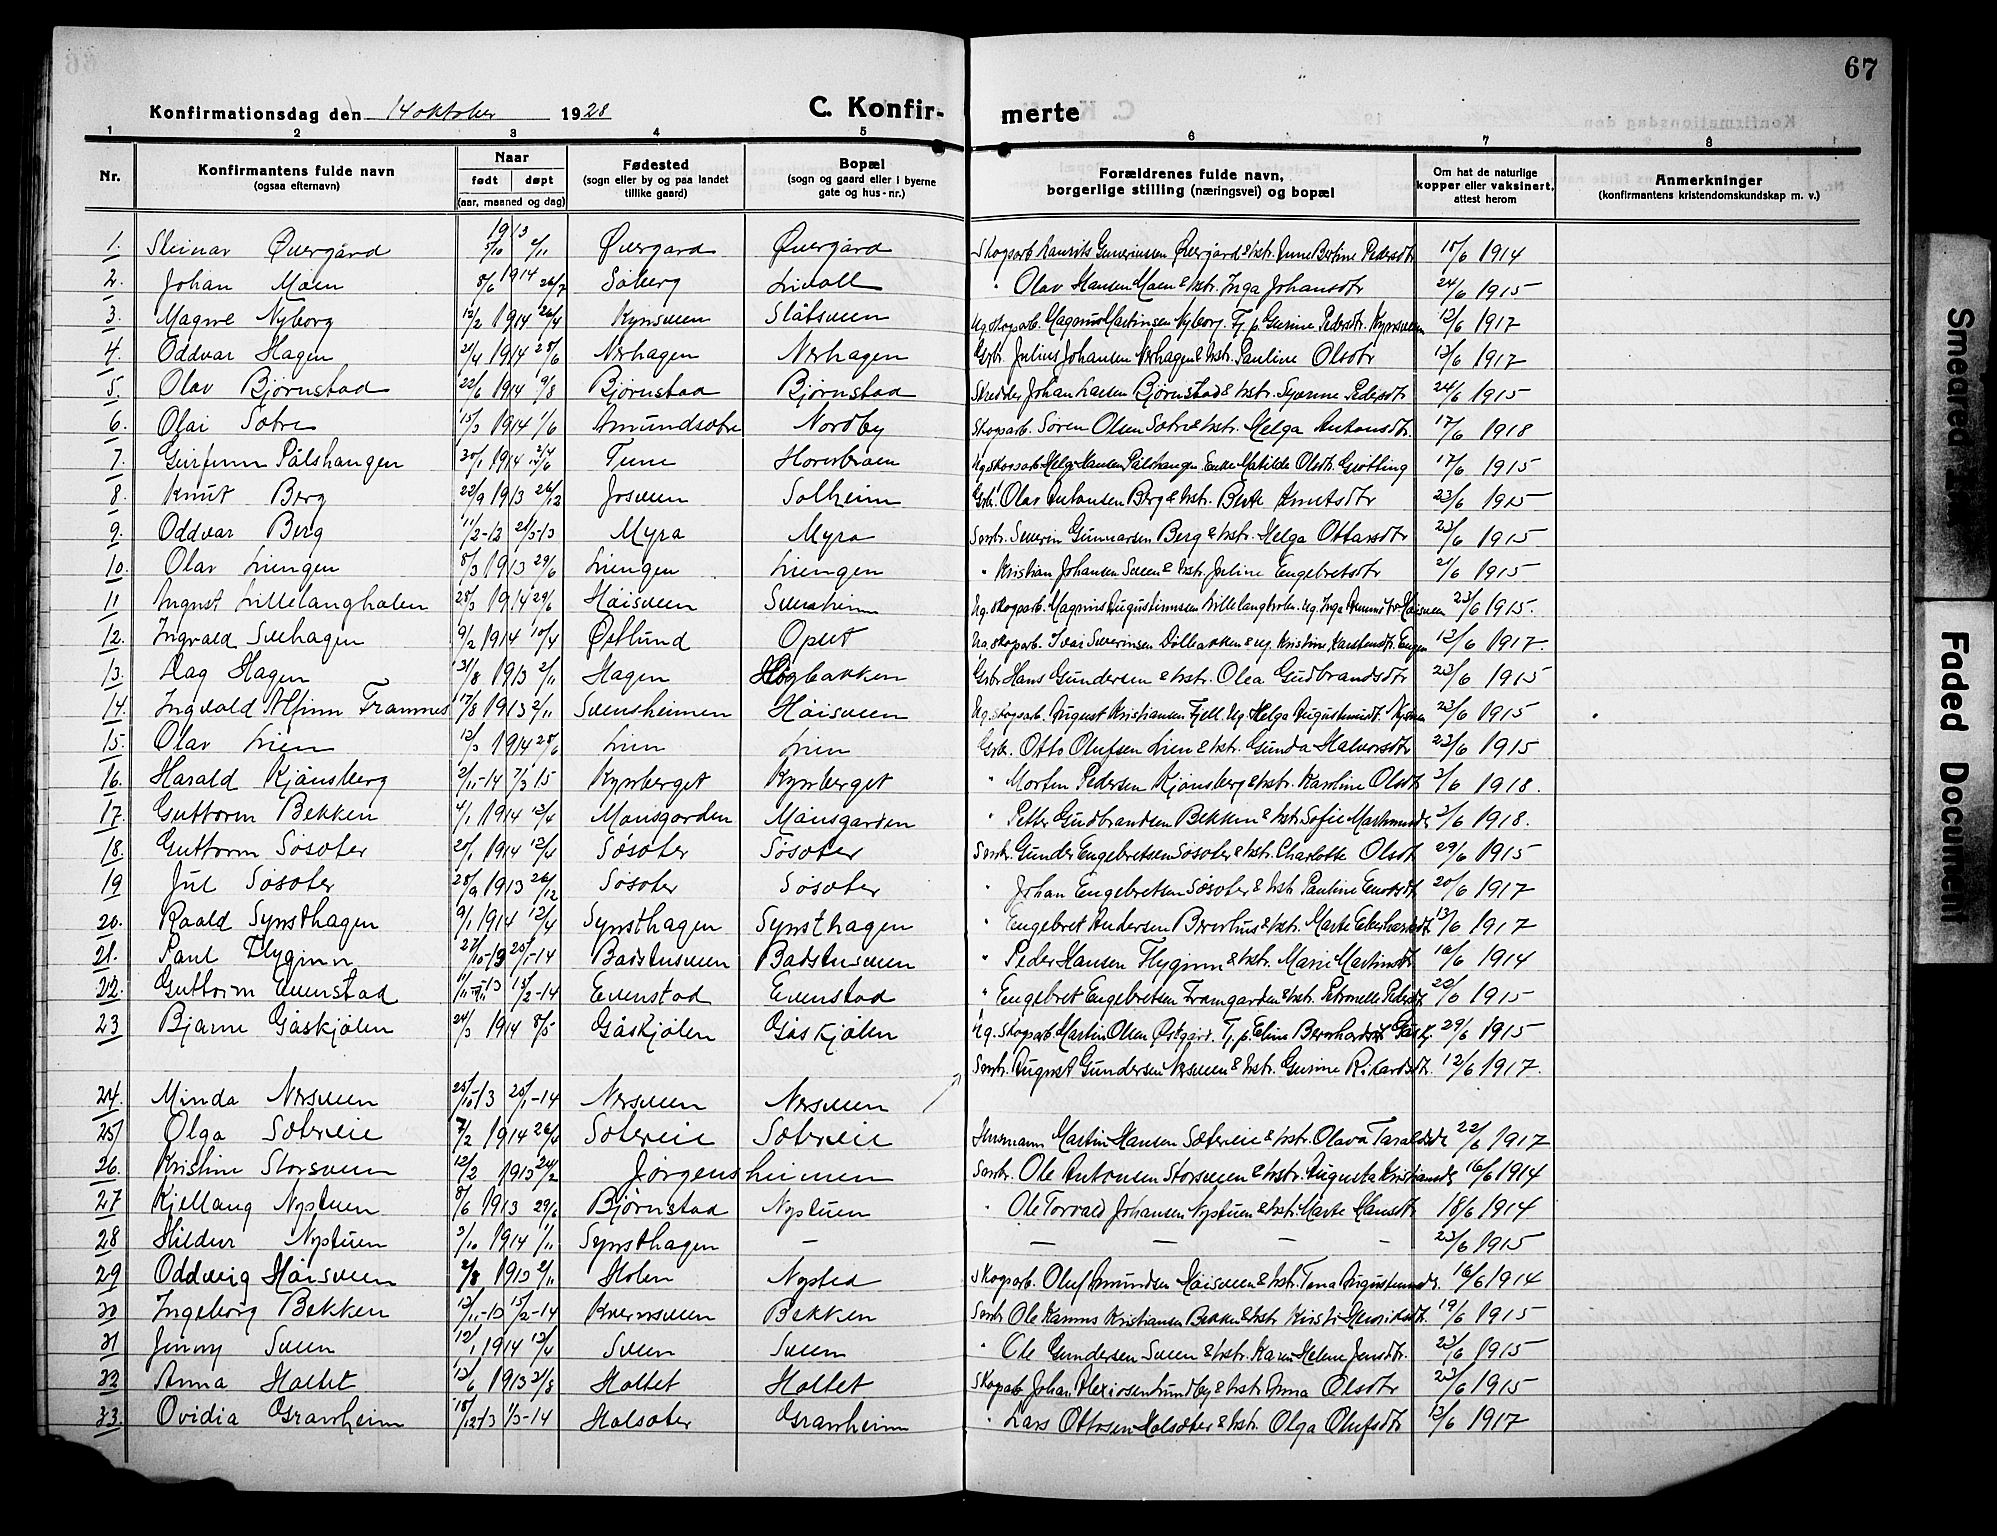 67
Konfirmationsdag den 14 oktober 1928
C. Konfir- merte
1 2 3 4 5 6 7 8
Nr.
Konfirmantens fulde navn
(ogsaa efternavn)
Naar
født døpt
(aar, maaned og dag)
Fødested
(sogn eller by og paa landet
tillike gaard)
Bopæl
(sogn og gaard eller i byerne
gate og hus-nr.)
Forældrenes fulde navn,
borgerlige stilling (næringsvei) og bopæl
Om hat de naturlige
kopper eller vaksinert,
attest herom
Anmerkninger
(konfirmantens kristendomskundskap m. v.)
1. Steinar Øvergård 5/10 1913 2/11 Øvergård Øvergård Skogsarb. Laurits Øvergård & hstr. Anne Bertine Pedersdtr 15/6 1914
2. Johan Moen 8/6 1914 26/7 Søberg " Olav Hansen Moen & hstr. Inga Johansdtr 24/6 1915
3. Magne Nyborg 12/2 1914 26/4 Kynsveen Slåtsveen Ug. skogsarb. Magnus Martinsen Nyborg. Tj. p. Gurine Pedersdtr. Kynsveen 12/6 1917
4. Oddvar Hagen 21/4 1914 28/6 Nerhagen Nerhagen Gbr. Julius Johansen Nerhagen & hstr. Pauline Olsdtr 13/6 1917
5. Olav Bjørnstad 22/6 1914 9/8 Bjørnstad Bjørnstad Skredder Johan Larsen Bjørnstad & hstr. Syverine Pedersdtr 24/6 1915
6. Olai Sætre 15/3 1914 1/6 Amundsætre Nordby Skogsarb. Søren Olsen Sætre & hstr. Helga Antonsdtr. 17/6 1918
7. Geirfinn Pålshaugen 30/1 1914 Tune Ug. skogsarb. Helge Hansen Pålshaugen Enke Matilde Olsdtr. Grøtting 17/6 1915
8. Knut Berg 22/9 1913 26/12 Josveen Solheim Gbr. Olav Antonsen Berg & hstr. Berte Knutsdtr 23/6 1915
9. Oddvar Berg Myra Myra Smbr. Severin Gunnarsen Berg & hstr. Helga Ottarsdtr 23/6 1915
10. Olav Liengen 8/3 1913 29/6 Liengen Liengen " Kristian Johansen Sveen & hstr. Juline Engebretsdtr 21/6 1915
11 August Lillelangholen 28/3 1914 29/6 Høisveen Svensheim Ug. skogsarb. Magnus Augustinsen Lillelangholen. Ug. Inga Høisveen 23/6 1915.
12. Ingvald Svehagen 9/2 1914 10/4 Østlund Opset Ug. skogsarb. Ivar Severinsen & ug. Kristine Karstensdtr. Engen 12/6 1917.
13. Dag Hagen 31/8 1913 2/11 Hagen Høgbakken Gbr Hans Gundersen & hstr. Olea Gudbrandsdtr 23/6 1915
14. Ingvald Alfinn Framnes 17/8 1913 2/11 Svensheimen Høisveen Ug. skogsarb. August Kristiansen Fjell. Ug. Helga Augustinusdt. 23/6 1915
15. Olav Lien 12/3 1914 28/6 Lien Lien Gbr. Otto Olufsen Lien & hstr. Gunda Halvorsdtr 23/6 1915
16. Harald Kjønsberg 2/11-14 7/3 15 Kynberget Kynberget " Morten Pedersen Kjønsberg & hstr. Karoline Olsdtr 3/6 1918.
17. Guttorm Bekken 4/1 1914 12/4 Månsgarden Månsgarden " Petter Gudbrandsen Bekken & hstr. Sofie 3/6 1918.
18. Guttorm Søsæter 25/1 1914 12/4 Søsæter Søsæter Smbr. Gunder Engebretsen Søsæter & hstr. Charlotte Olsdt 29/6 1915
19 Jul Søsæter 28/9 1913 26/12 Søsæter Søsæter " Johan Engebretsen Søsæter & hstr. Pauline 20/6 1917
20. Roald Synsthagen 9/1 1914 12/4 Synsthagen Synsthagen " Engebret Andersen & hstr. Marte 13/6 1917
21. Paul Flyginn 27/10-13 25/1-14 Badstusveen Badstusveen " Peder Hansen Flyginn & hstr. Marie Martinsdt 16/6 1914
22. Guttorm Evenstad 15/2-14 Evenstad Evenstad " Engebret Engebretsen Framgarden & hstr. Petronelle Pedersdt. 20/6 1915
23 Bjarne Gåskjølen 24/3 1914 Gåskjølen Gåskjølen Ug. skogsarb. Martin Olsen Østgård. Tj. p. Eline Bernhardsdt. 29/6 1915
Smbr. August Gundersen Nersveen & hstr. Gurine Rikardsdtr. 12/6 1917.
24. Minda Nersveen 25/10-13 25/1-14 Nersveen Nersveen
25 Olga Sætereie 7/2 1914 26/4 Sætereie Sætereie Husmann Martin Hansen Sætereie & hstr. Olava Taraldsdt 22/6 1917
26. Kristine Storsveen 12/2 1913 24/2 Jørgensheimen Smbr. Ole Antonsen Storsveen & hstr. Augusta Kristiansdt 16/6 1914
27 Kjellaug Nystuen 8/6 1913 29/6 Bjørnstad Nystuen " Ole Torvald Johansen Nystuen & hstr. Marte Hansdtr 18/6 1914
28 Hildur Nystuen 3/10 1914 1/11 Synsthagen — — — — — 23/6 1915
29 Oddveig Høisveen 2/8 1913 2/11 Holen Nysted Skogsarb. Oluf Amundsen Høisveen & hstr. Tena Augustinusdt. 16/6 1914
30 Ingeborg Bekken 13/11-13 15/2-14 Kvernveen Bekken Smbr. Ole Kristiansen Bekken & hstr. Kristi Henriksdtr. 19/6 1915
31 Jenny Sveen 12/1 1914 13/4 Sveen Sveen " Ole Gundersen Sveen & hstr. Karen Helene Jensdtr. 23/6 1915
32 Anna Holtet 13/6 1913 3/8 Holtet Holtet Skogsarb Johan Lundby & hstr. Anna Olsdtr 23/6 1915
33. Ovidia Granheim 18/12-13 1/3-14 Holsæter Granheim " Lars Ottosen Holsæter & hstr. Olga Olufsdtr 13/6 1917
Faded Document